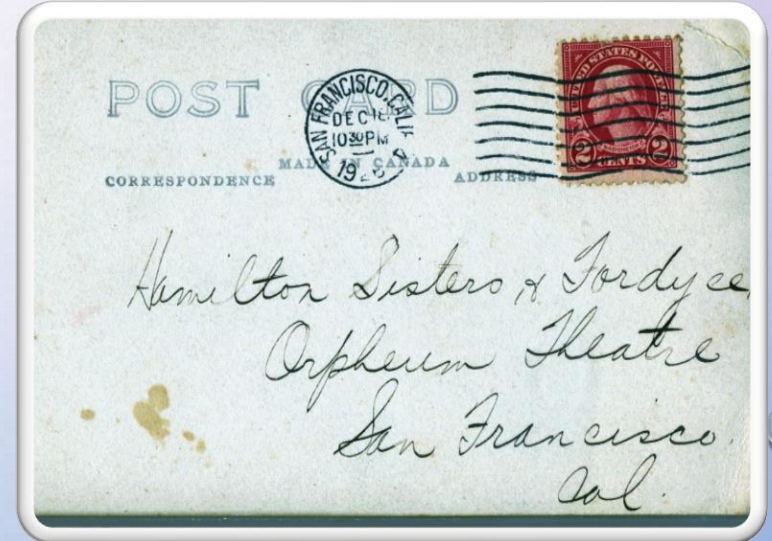 POST CARD
SAN FRANCISCO, CALIF.
DEC 18
10 30 PM
UNITED STATES POSTAGE
2 CENTS 2
MADE IN CANADA
CORRESPONDENCE
ADDRESS
Hamilton Sisters & Fordyce
Orpheum Theatre
San Francisco.
Cal.